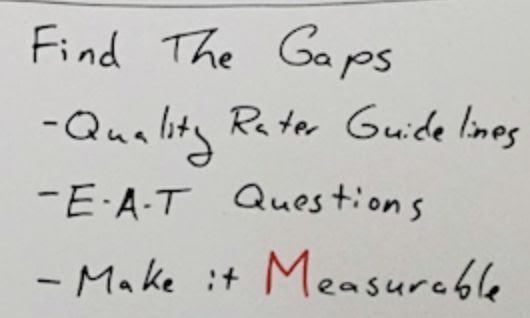 Find The Gaps
- Quality Rater Guidelines
- E-A-T Questions
- Make it Measurable